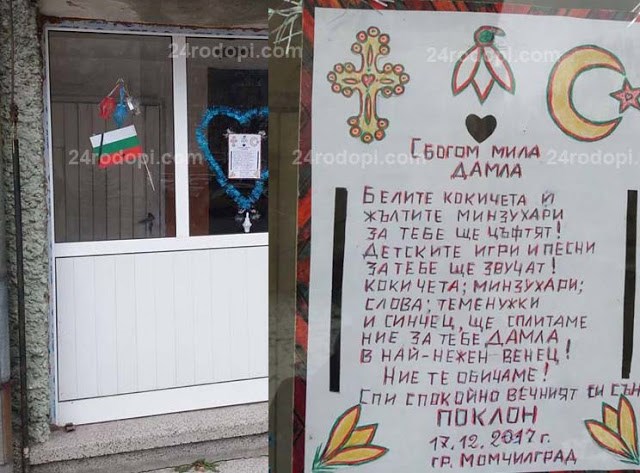 24rodopi.com
24rodopi.com
24rodopi.com
24rodopi.com
24rodopi.com
СБОГОМ МИЛА
ДАМЛА
БЕЛИТЕ КОКИЧЕТА И
ЖЪЛТИТЕ МИНЗУХАРИ
ЗА ТЕБЕ ЩЕ ЦЪФТЯТ!
ДЕТСКИТЕ ИГРИ И ПЕСНИ
ЗА ТЕБЕ ЩЕ ЗВУЧАТ!
КОКИЧЕТА; МИНЗУХАРИ;
СЛОВА; ТЕМЕНУЖКИ
И СИНЧЕЦ, ЩЕ СПЛИТАМЕ
НИЕ ЗА ТЕБЕ ДАМЛА
В НАЙ-НЕЖЕН ВЕНЕЦ!
НИЕ ТЕ ОБИЧАМЕ!
СПИ СПОКОЙНО ВЕЧНИЯТ СИ СЪН
ПОКЛОН
17.12.2017 г.
гр. МОМЧИЛГРАД
24rodopi.com
24rodopi.com
24rodopi.com